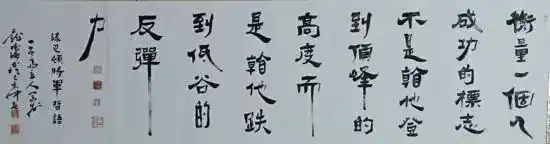 衡量一個人
成功的標志
不是看他登
到頂峰的
高度而
是看他跌
到低谷的
反彈
力
將軍哲語